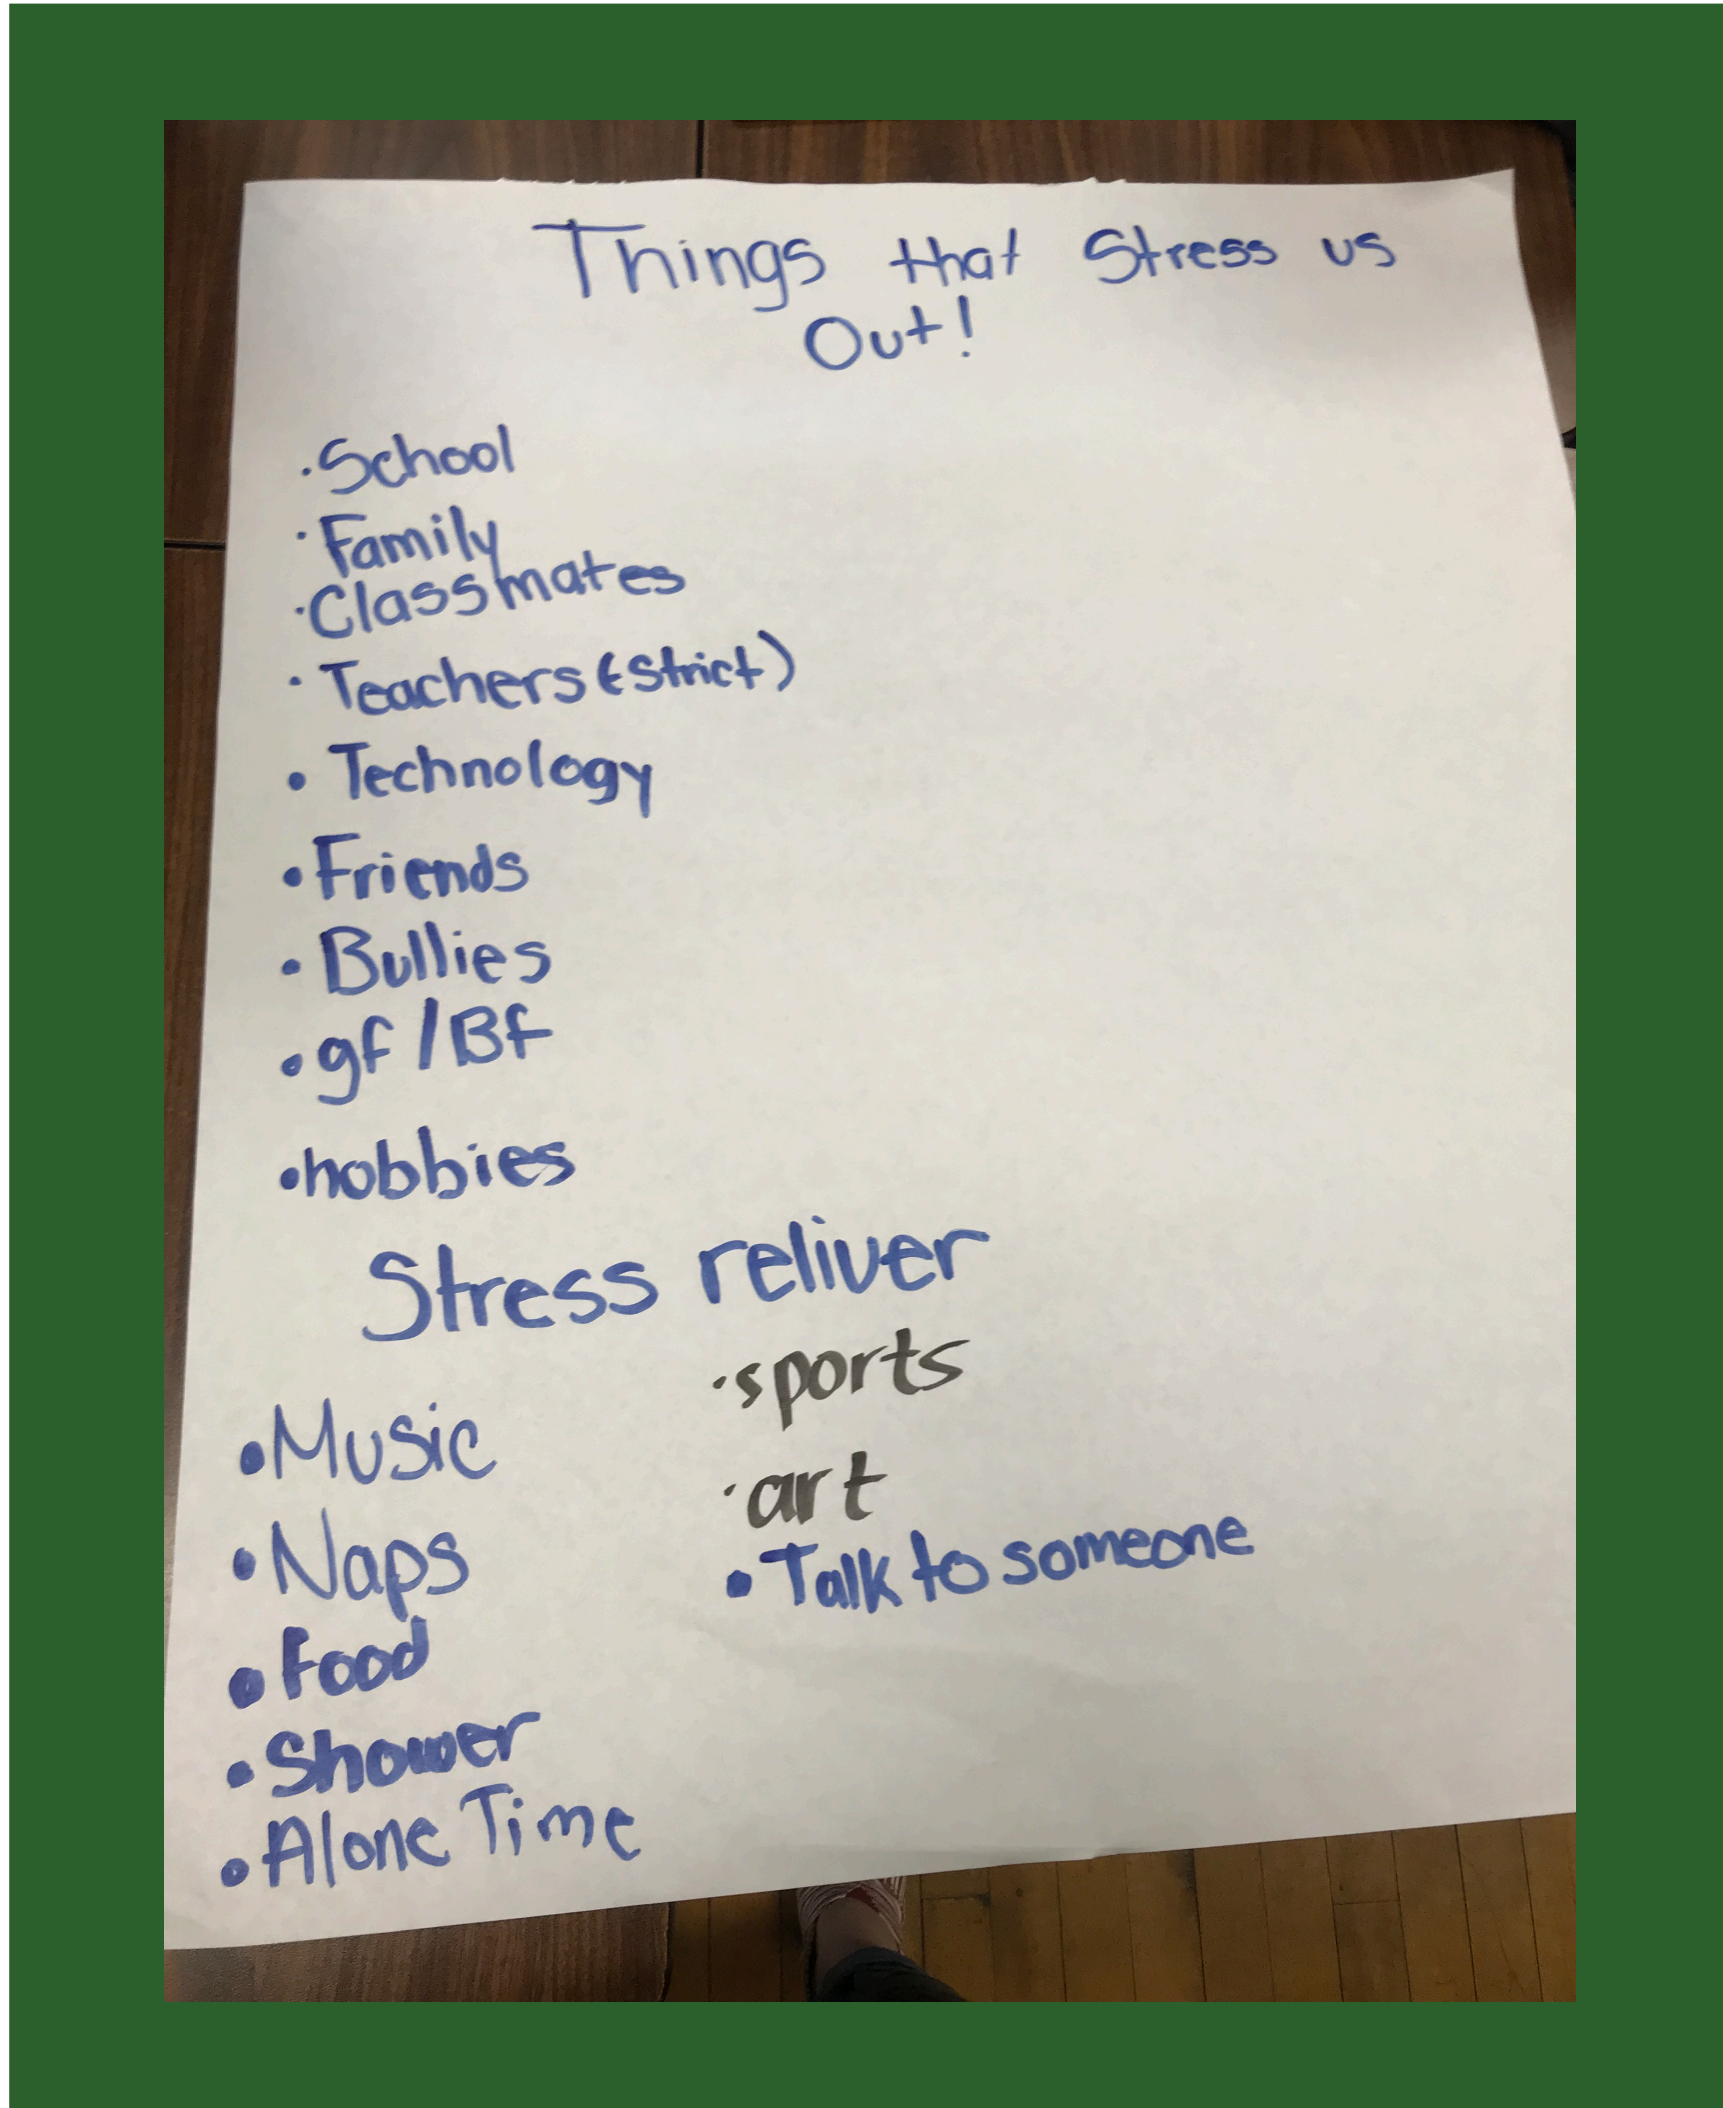 Things that Stress us
Out!
· School
· Family
· Classmates
· Teachers (strict)
• Technology
• Friends
• Bullies
• gf / Bf
• hobbies
Stress reliver
• Music
• Naps
• Food
• Shower
• Alone Time
· sports
· art
• Talk to someone